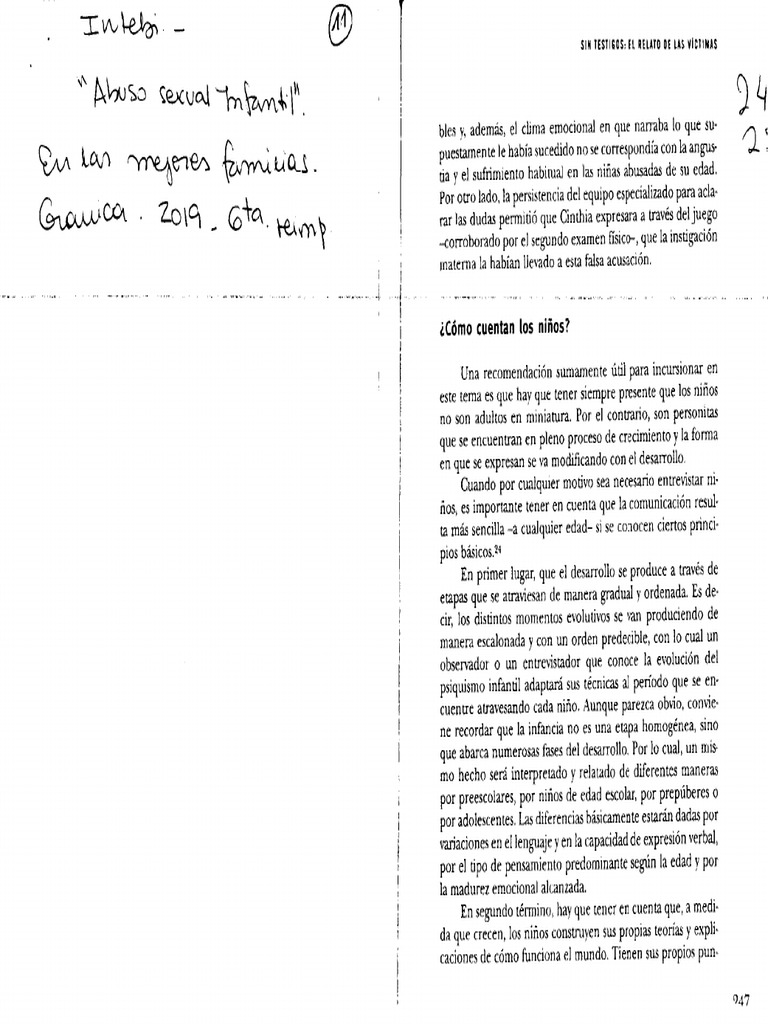 Intebi. -
11
"Abuso sexual Infantil".
En las mejores familias.
Granica. 2019. 6ta. reimp.
SIN TESTIGOS: EL RELATO DE LAS VÍCTIMAS
24
bles y, además, el clima emocional en que narraba lo que su-
puestamente le había sucedido no se correspondía con la angus-
tia y el sufrimiento habitual en las niñas abusadas de su edad.
Por otro lado, la persistencia del equipo especializado para acla-
rar las dudas permitió que Cinthia expresara a través del juego
–corroborado por el segundo examen físico–, que la instigación
materna la habían llevado a esta falsa acusación.
¿Cómo cuentan los niños?
Una recomendación sumamente útil para incursionar en
este tema es que hay que tener siempre presente que los niños
no son adultos en miniatura. Por el contrario, son personitas
que se encuentran en pleno proceso de crecimiento y la forma
en que se expresan se va modificando con el desarrollo.
Cuando por cualquier motivo sea necesario entrevistar ni-
ños, es importante tener en cuenta que la comunicación resul-
ta más sencilla –a cualquier edad– si se conocen ciertos princi-
pios básicos.24
En primer lugar, que el desarrollo se produce a través de
etapas que se atraviesan de manera gradual y ordenada. Es de-
cir, los distintos momentos evolutivos se van produciendo de
manera escalonada y con un orden predecible, con lo cual un
observador o un entrevistador que conoce la evolución del
psiquismo infantil adaptará sus técnicas al período que se en-
cuentre atravesando cada niño. Aunque parezca obvio, convie-
ne recordar que la infancia no es una etapa homogénea, sino
que abarca numerosas fases del desarrollo. Por lo cual, un mis-
mo hecho será interpretado y relatado de diferentes maneras
por preescolares, por niños de edad escolar, por prepúberes o
por adolescentes. Las diferencias básicamente estarán dadas por
variaciones en el lenguaje y en la capacidad de expresión verbal,
por el tipo de pensamiento predominante según la edad y por
la madurez emocional alcanzada.
En segundo término, hay que tener en cuenta que, a medi-
da que crecen, los niños construyen sus propias teorías y expli-
caciones de cómo funciona el mundo. Tienen sus propios pun-
247